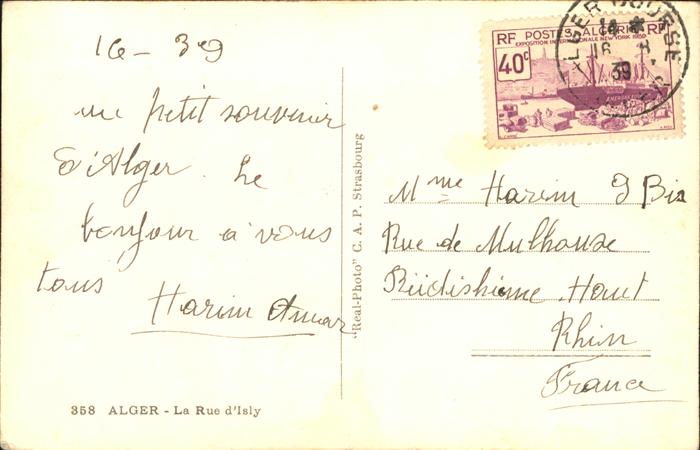 16 - 39
un petit souvenir
d'Alger. Le
bonjour a vous
tous
Harim Amar
358 ALGER - La Rue d'Isly
"Real-Photo" C. A. P. Strasbourg
RF POSTES ALGERIE RF
EXPOSITION INTERNATIONALE NEW YORK 1939
40c
ALGER BOURSE
16
39
Mme Harim 9 Bis
Rue de Mulhouse
Rüdishime Haut
Rhin
France